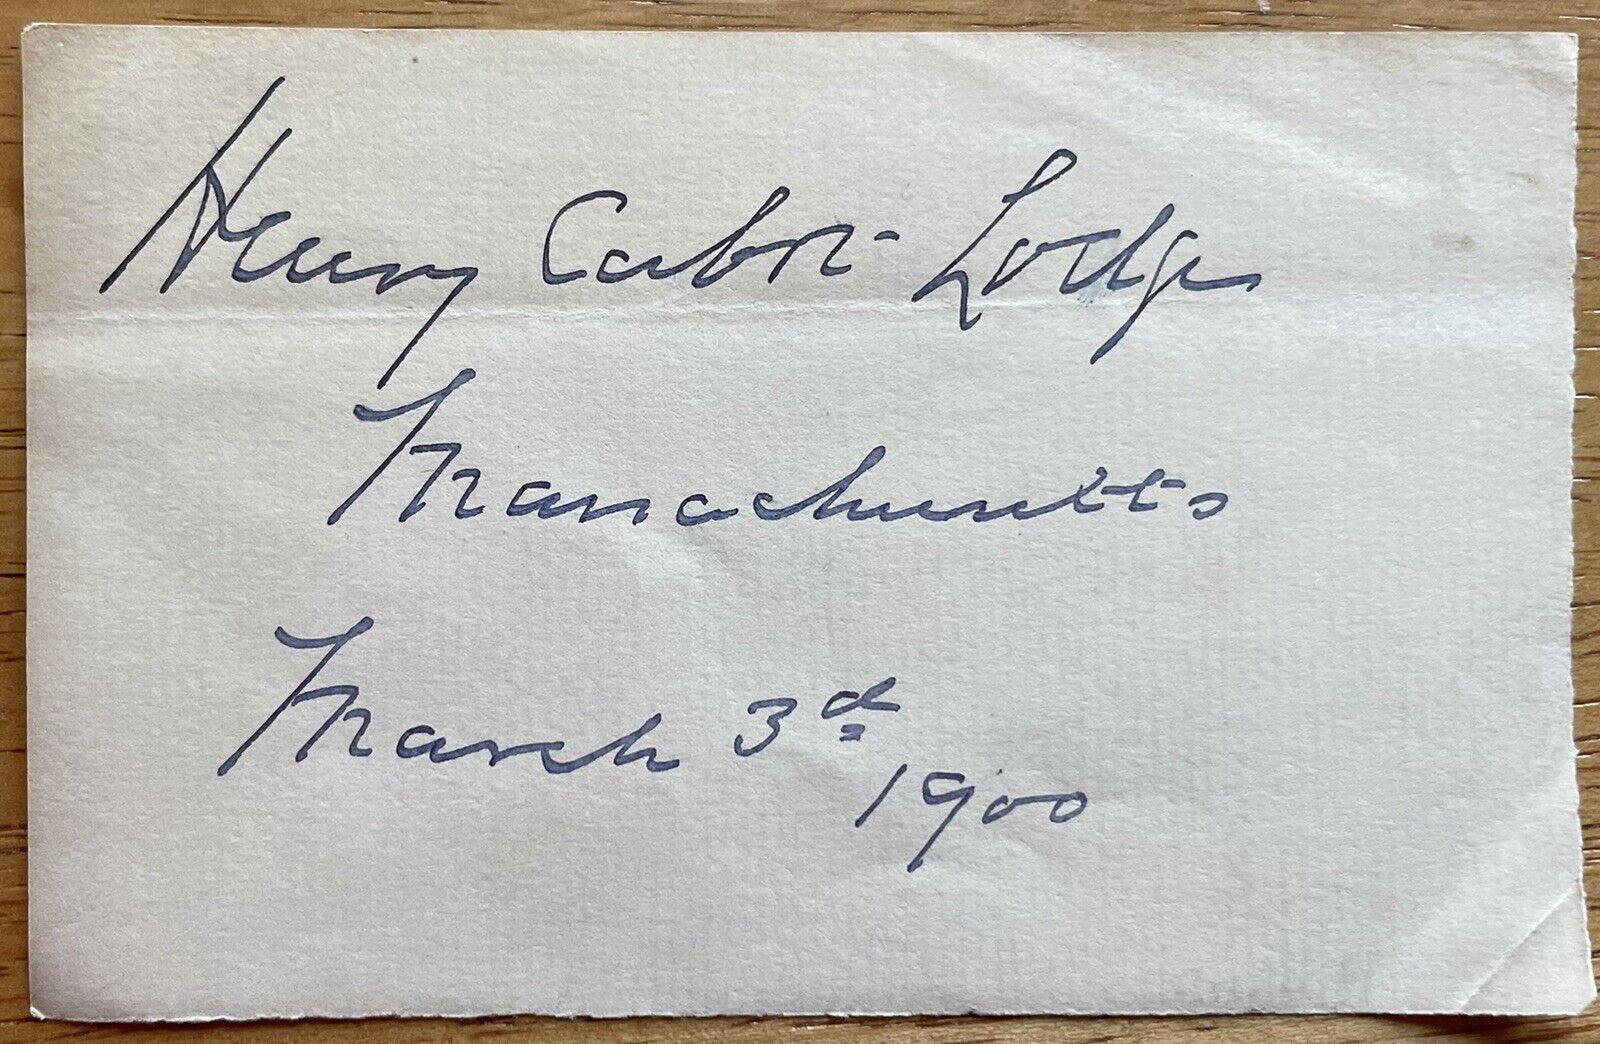 Henry Cabot Lodge
Massachusetts
March 3d
1900